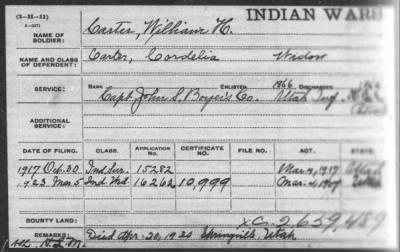 (3-II-11)
INDIAN WARS
NAME OF SOLDIER: Carter, William H.
NAME AND CLASS OF DEPENDENT: Carter, Cordelia Widow
RANK ENLISTED 1866 DISCHARGED 1866
SERVICE: Capt. John S. Boyer's Co. Utah Inf.
ADDITIONAL SERVICE:
DATE OF FILING. CLASS. APPLICATION NO. CERTIFICATE NO. FILE NO. ACT. STATE.
1917 Oct. 20 Ind Sur. 15282 Mar. 4, 1917 Utah
1923 Mar 5 Ind. Wid. 16262 10,999 Mar. 4, 1917
BOUNTY LAND: XC-2659,489
REMARKS: Died Apr. 20, 1920 Springville, Utah